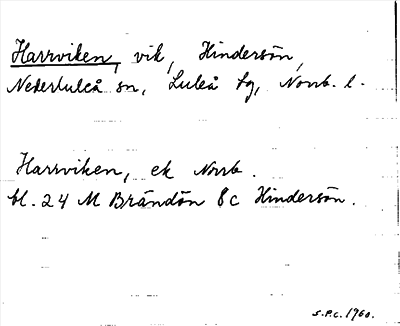 Harrviken, vik, Hindersön,
Nederluleå sn, Luleå tg, Norrb. l.
Harrviken, ek Norrb.
bl. 24 M Brändön 8c Hindersön.
S.P.C. 1960.